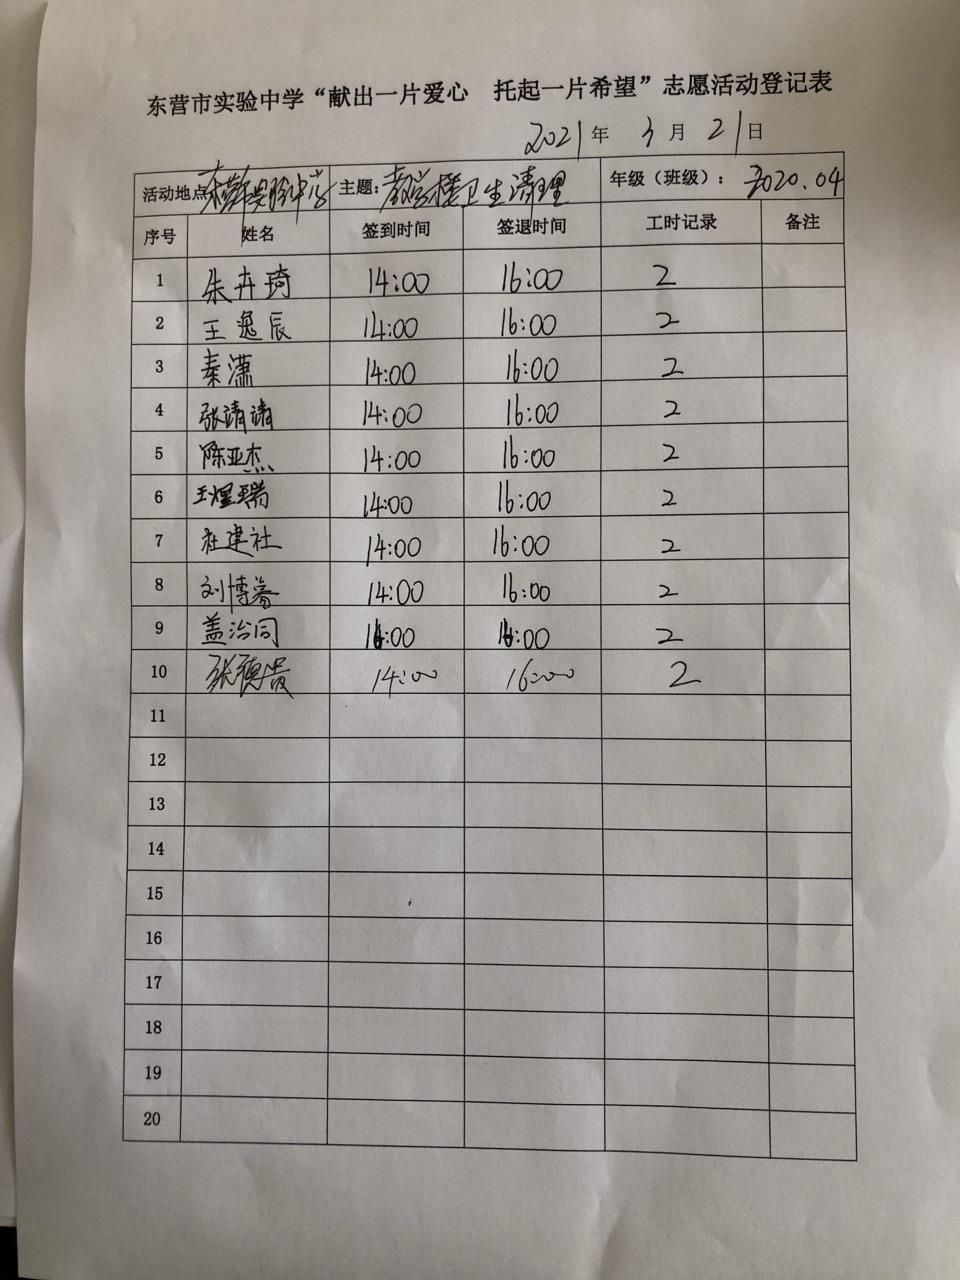 东营市实验中学“献出一片爱心 托起一片希望”志愿活动登记表
2021年 3月21日
活动地点 东营市实验中学 主题：教学楼卫生清理 年级（班级）：2020.04
序号 姓名 签到时间 签退时间 工时记录 备注
1 朱卉琦 14:00 16:00 2
2 王逸辰 14:00 16:00 2
3 秦潇 14:00 16:00 2
4 张清清 14:00 16:00 2
5 陈亚杰 14:00 16:00 2
6 王煜瑞 14:00 16:00 2
7 杜建社 14:00 16:00 2
8 刘博 14:00 16:00 2
9 盖治同 14:00 16:00 2
10 张德贵 14:00 16:00 2
11
12
13
14
15
16
17
18
19
20